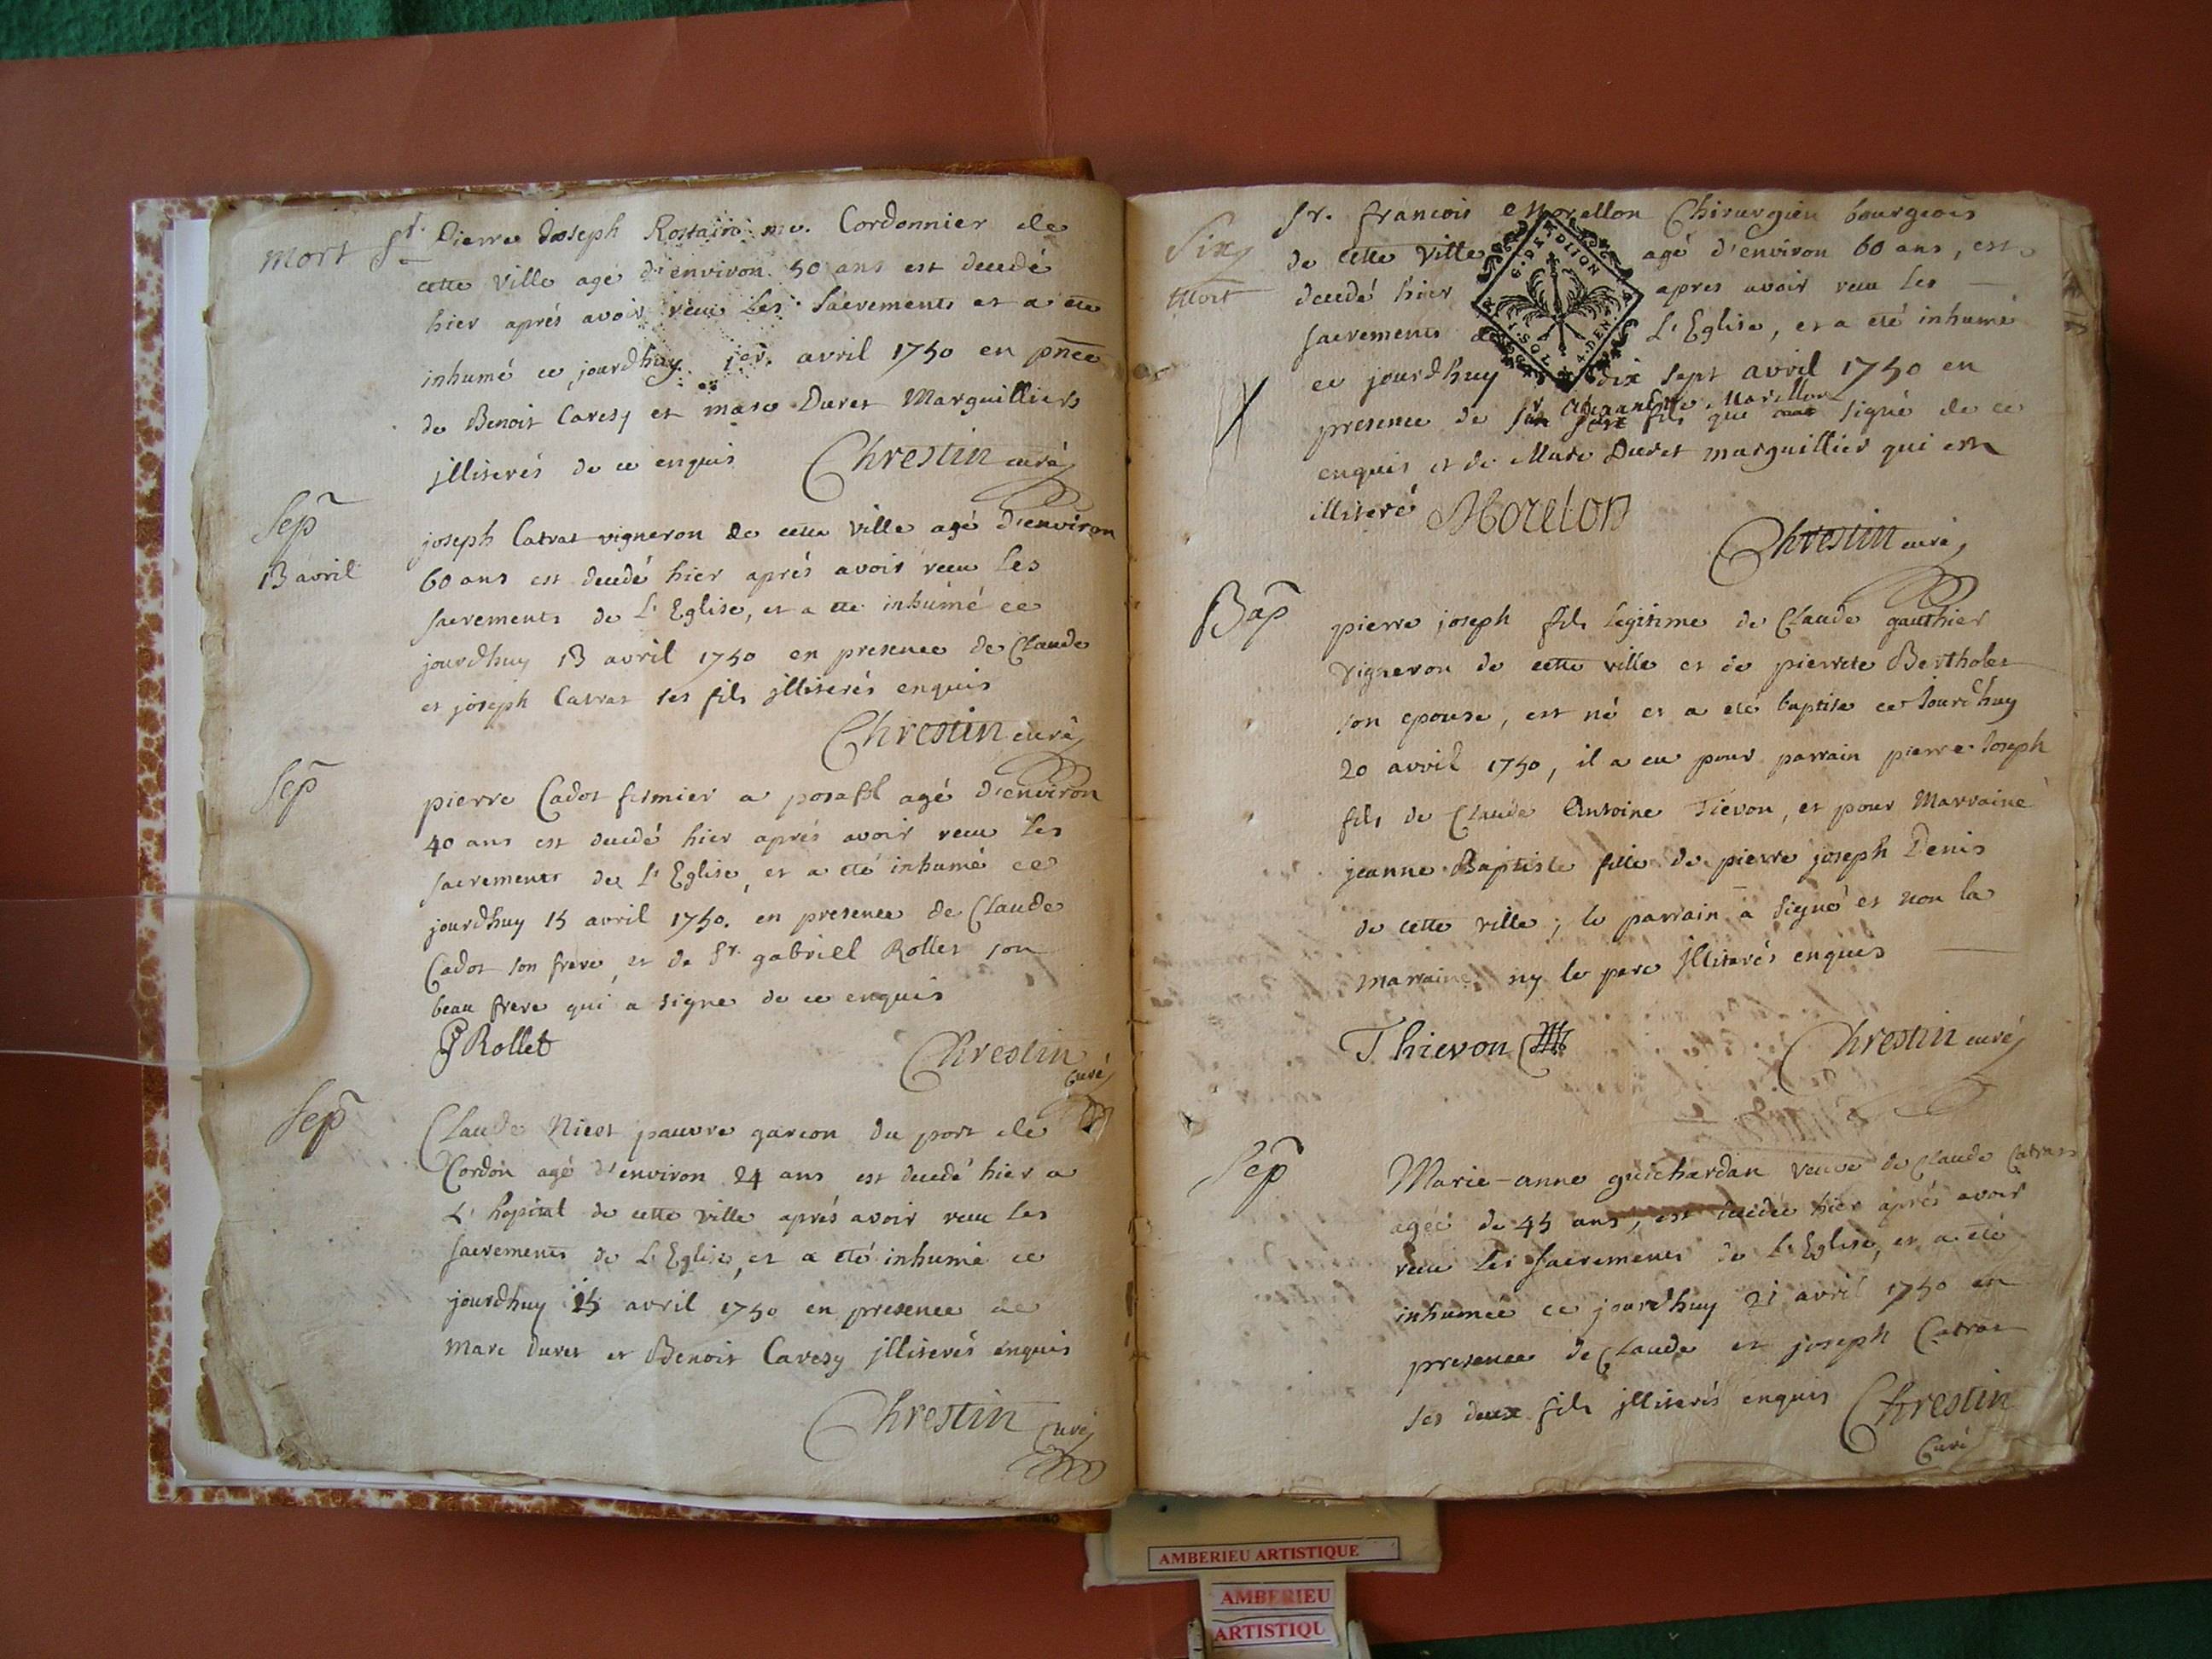 mort Sr. Pierre Joseph Rostain me. Cordonnier de
cette ville agé d'environ 50 ans est decedé
hier aprés avoir receu les sacrements et a ete
inhumé ce jourdhuy 1er. avril 1750 en pñce
de Benoit Caresy et marc Duret Marguilliers
jlliterés de ce enquis Chrestin curé
Sep
13 avril
joseph Catrat vigneron de cette ville agé d'environ
60 ans est decedé hier aprés avoir receu les
sacrements de L'Eglise, et a ete inhumé ce
jourdhuy 13 avril 1750 en presence de Claude
et joseph Catrat ses fils jlliterés enquis
Chrestin curé
Sep
pierre Cadot fermier a posafol agé d'environ
40 ans est decedé hier aprés avoir receu les
sacrements de L'Eglise, et a été inhumé ce
jourdhuy 15 avril 1750. en presence de Claude
Cadot son frere, et de Sr. gabriel Rollet son
beau frere qui a signe de ce enquis
G Rollet
Chrestin
Curé
Sep
Claude Nicot pauvre garcon du port de
Cordon agé d'environ 24 ans est decedé hier a
L'hopital de cette ville aprés avoir receu les
sacrements de L'Eglise, et a eté inhumé ce
jourdhuy 15 avril 1750 en presence de
Marc Duret et Benoit Caresy jlliterés enquis
Chrestin
Curé
Six
Mort
Sr. francois Morellon Chirurgien bourgeois
de cette ville agé d'environ 60 ans, est
decedé hier apres avoir receu les
sacrements de L'Eglise, et a eté inhumé
G. DE DIION
1. SOL 4. DEN.
ce jourdhuy dix sept avril 1750 en
Morellon
presence de fils que signé de ce
enquis et de Marc Duret marguillier qui est
illiteré Morelon
Chrestin curé
Bap
pierre joseph fils legitime de Claude gauthier
vigneron de cette ville et de pierrete Bertholet
son epouse, est né et a eté baptise ce Jourdhuy
20 avril 1750, il a eu pour parrain pierre Joseph
fils de Claude Antoine Tievon, et pour Marraine
jeanne Baptiste fille de pierre joseph Denis
de cette ville; le parrain a signé et non la
marraine ny le pere jlliterés enquis
Thievon Chrestin curé
Sep
Marie-anne guichardan veuve de Claude Catras
agée de 45 ans, est decedée hier aprés avoir
receu les sacrements de L'Eglise, et a eté
inhumée ce jourdhuy 21 avril 1750 en
presence de Claude et joseph Catrat
ses deux fils jlliterés enquis Chrestin
Curé
AMBERIEU ARTISTIQUE
AMBERIEU
ARTISTIQU